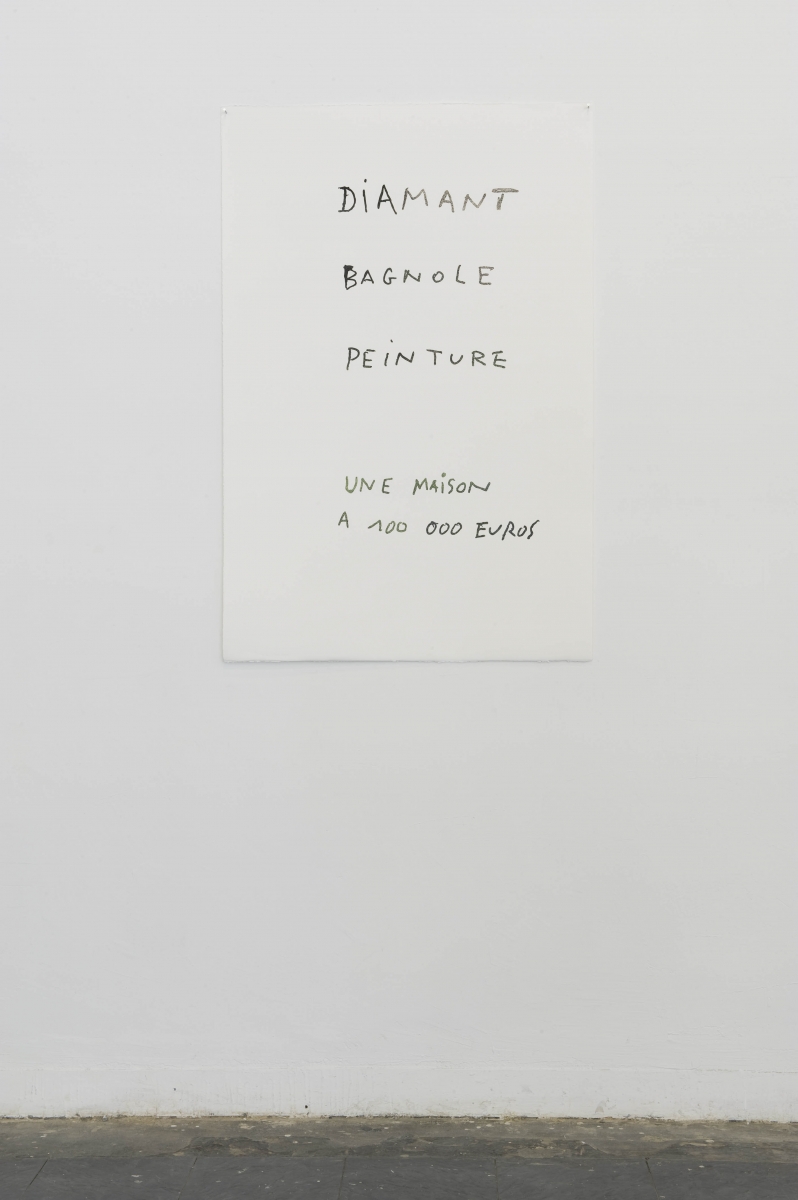 DiAMANT
BAGNOLE
PEiNTURE
UNE MAiSON
A 100 000 EUROS